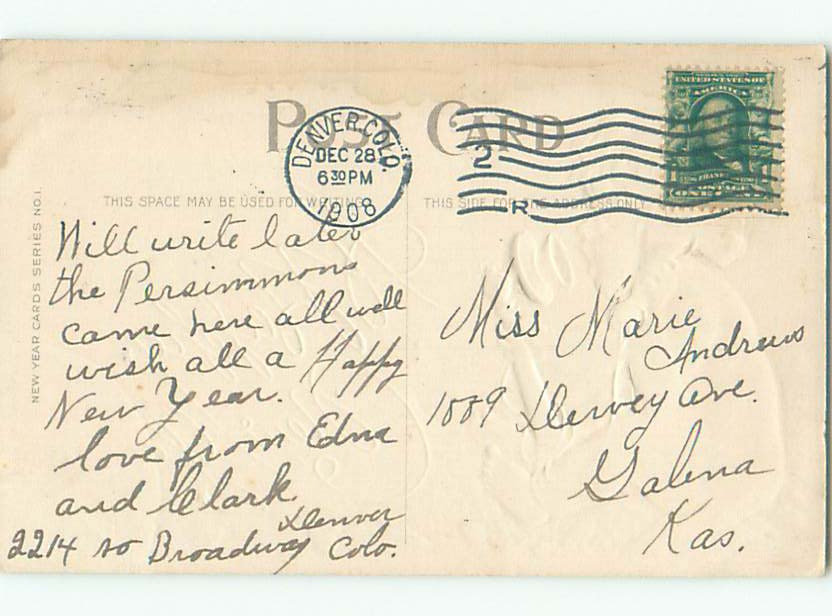 POST CARD
DENVER, COLO.
DEC 28
6 30 PM
1908
2
R
UNITED STATES OF
AMERICA
THIS SPACE MAY BE USED FOR WRITING
THIS SIDE FOR THE ADDRESS ONLY
NEW YEAR CARDS SERIES NO. 1.
Will write later
the Persimmons
came here all well
wish all a Happy
New Year.
love from Edna
and Clark
2214 so Broadway Denver
Colo.
Miss Marie
Andrews
1009 Dewey Ave.
Galena
Kas.